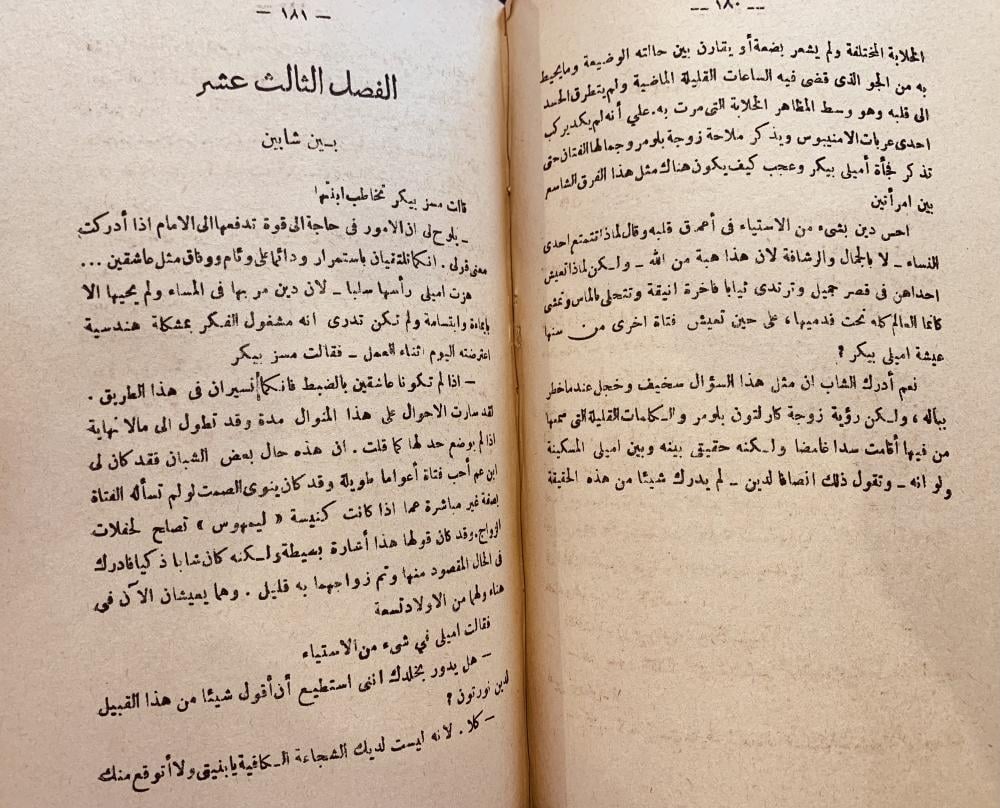 — ١٨٠ —
الخلابة المختلفة ولم يشعر بضعة أو يقارن بين حالته الوضيعة وما يحيط
به من الجو الذى قضى فيه الساعات القليلة الماضية ولم يتطرق الحسد
الى قلبه وهو وسط المظاهر الخلابة التى مرت به . علي أنه لم يكد يركب
احدى عربات الامنيبوس ويذكر ملاحة زوجة بلومر وجمالها الفتان حتى
تذكر فجأة أميلى بيكر وعجب كيف يكون هناك مثل هذا الفرق الشاسع
بين امرأتين
احس دين بشىء من الاستياء في أعمق قلبه وقال لماذا تتمتع احدى
النساء ـ لا بالجمال والرشافة لان هذا هبة من الله ـ ولكن لماذا تعيش
احداهن فى قصر جميل وترتدى ثيابا فاخرة انيقة وتتحلى بالماس وتمشى
كانما العالم كله تحت قدميها ، على حين تعيش فتاة اخرى من سنها
عيشة اميلى بيكر ؟
نعم أدرك الشاب ان مثل هذا السؤال سخيف وخجل عند ما خطر
بباله ، ولكن رؤية زوجة كارلتون بلومر والكلمات القليلة التى سمعها
من فيها أقامت سدا غامضا ولكنه حقيقى بينه وبين اميلى المسكينة
ولو انه ـ وتقول ذلك انصافا لدين ـ لم يدرك شيئا من هذه الحقيقة
— ١٨١ —
الفصل الثالث عشر
بين شابين
قالت مسز بيكر تخاطب ابنتها
ـ يلوح لى ان الامور فى حاجة الى قوة تدفعها الى الامام اذا أدركت
معنى قولى . انكما تلتقيان باستمرار ودائما على وئام ووفاق مثل عاشقين ...
هزت اميلى رأسها سلبا ـ لان دين مر بها فى المساء ولم يحيها الا
بايماءة وابتسامة ولم تكن تدرى انه مشغول الفكر بمشكلة هندسية
اعترضته اليوم اثناء العمل ـ فقالت مسز بيكر
ـ اذا لم تكونا عاشقين بالضبط فانكما تسيران فى هذا الطريق .
لقد سارت الاحوال على هذا المنوال مدة وقد تطول الى مالا نهاية
اذا لم يوضع حد لها كما قلت . ان هذه حال بعض الشبان فقد كان لى
ابن عم أحب فتاة أعواما طويلة وقد كان ينوى الصمت لو لم تسأله الفتاة
بصفة غير مباشرة عما اذا كانت كنيسة « ليمهوس » تصلح لحفلات
الزواج . وقد كان قولها هذا أشارة بسيطة ولكنه كان شابا ذكيا فادرك
فى الحال المقصود منها وتم زواجهما به قليل . وهما يعيشان الآن فى
هناء ولهما من الاولاد تسعة
فقالت اميلى في شىء من الاستياء
ـ هل يدور بخلدك اننى استطيع أن أقول شيئا من هذا القبيل
لدين نورتون ؟
ـ كلا . لانه ليست لديك الشجاعة الكافية يا بنيتى ولا أتوقع منك